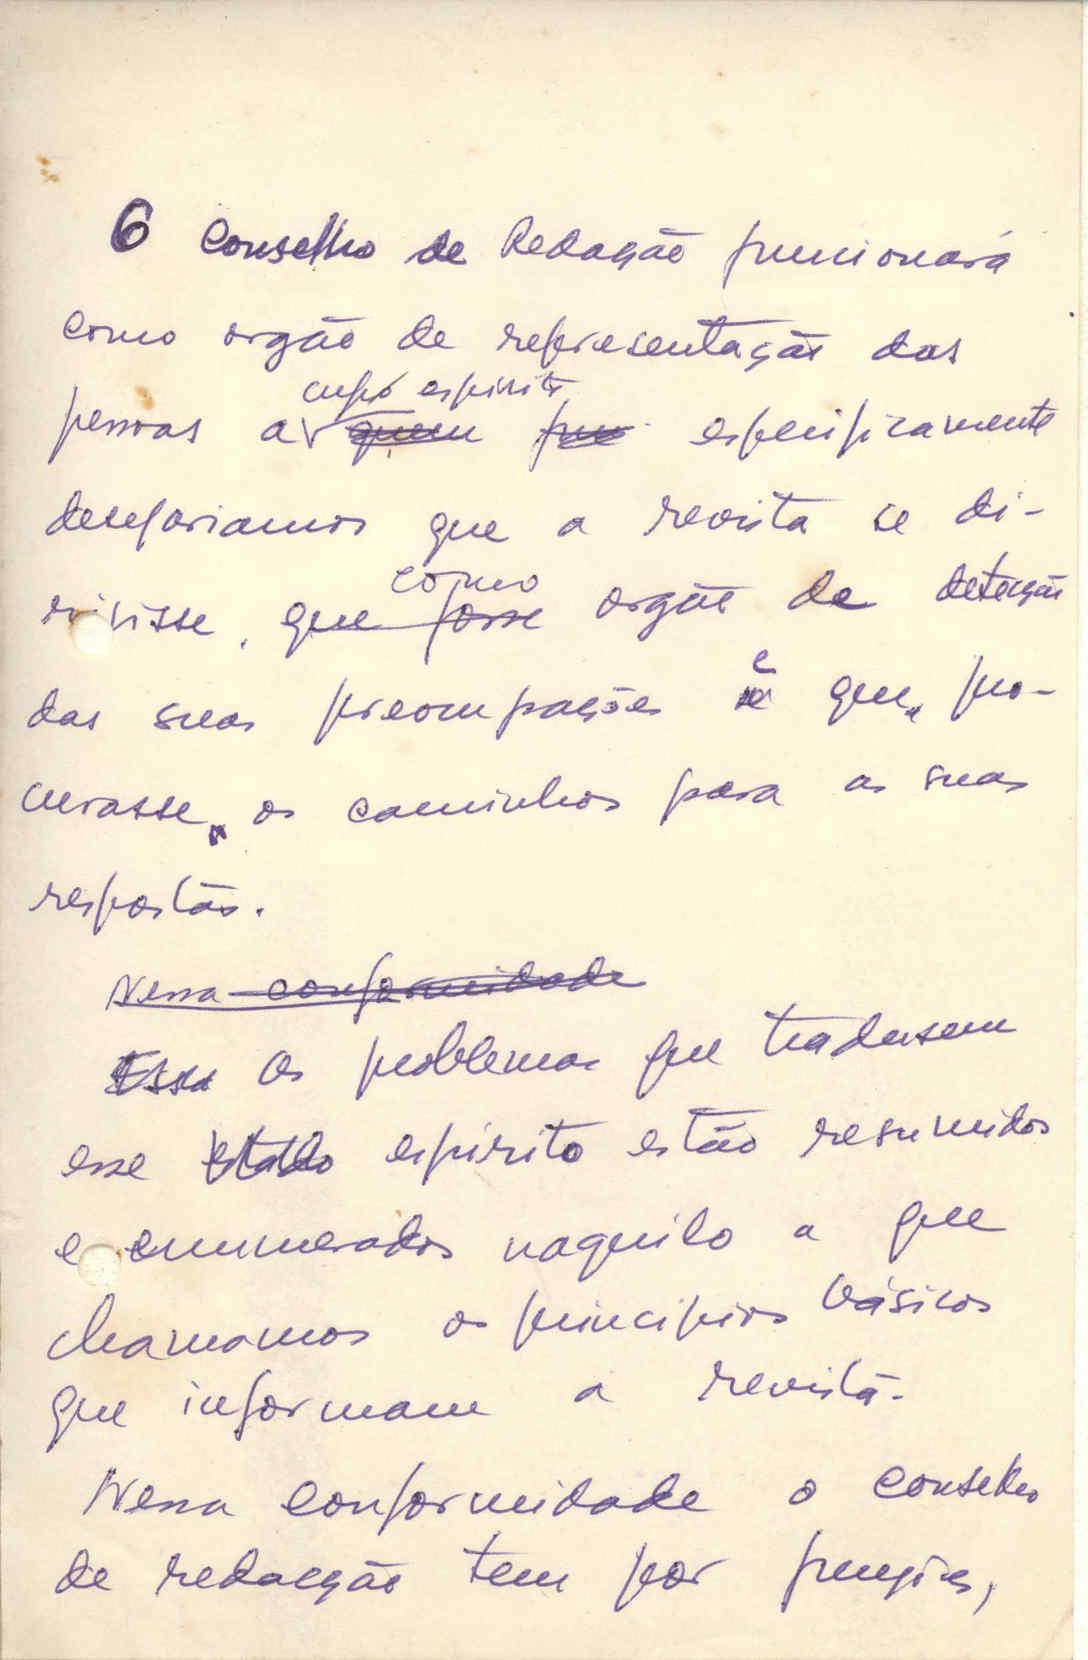 O Conselho de Redação funcionará
como orgão de representação das
pessoas a cujo espirito quem especificamente
desejariamos que a revista se di-
risisse, que fosse como orgão de detecção
das suas preocupações e que, pro-
curasse, os caminhos para as suas
respostas.
Nessa conformidade
Essa Os problemas que tradusem
esse espirito estão resumidos
e enumerados naquilo a que
chamamos os principios básicos
que informam a revista.
Nessa conformidade o conselho
de redacção tem por funções,